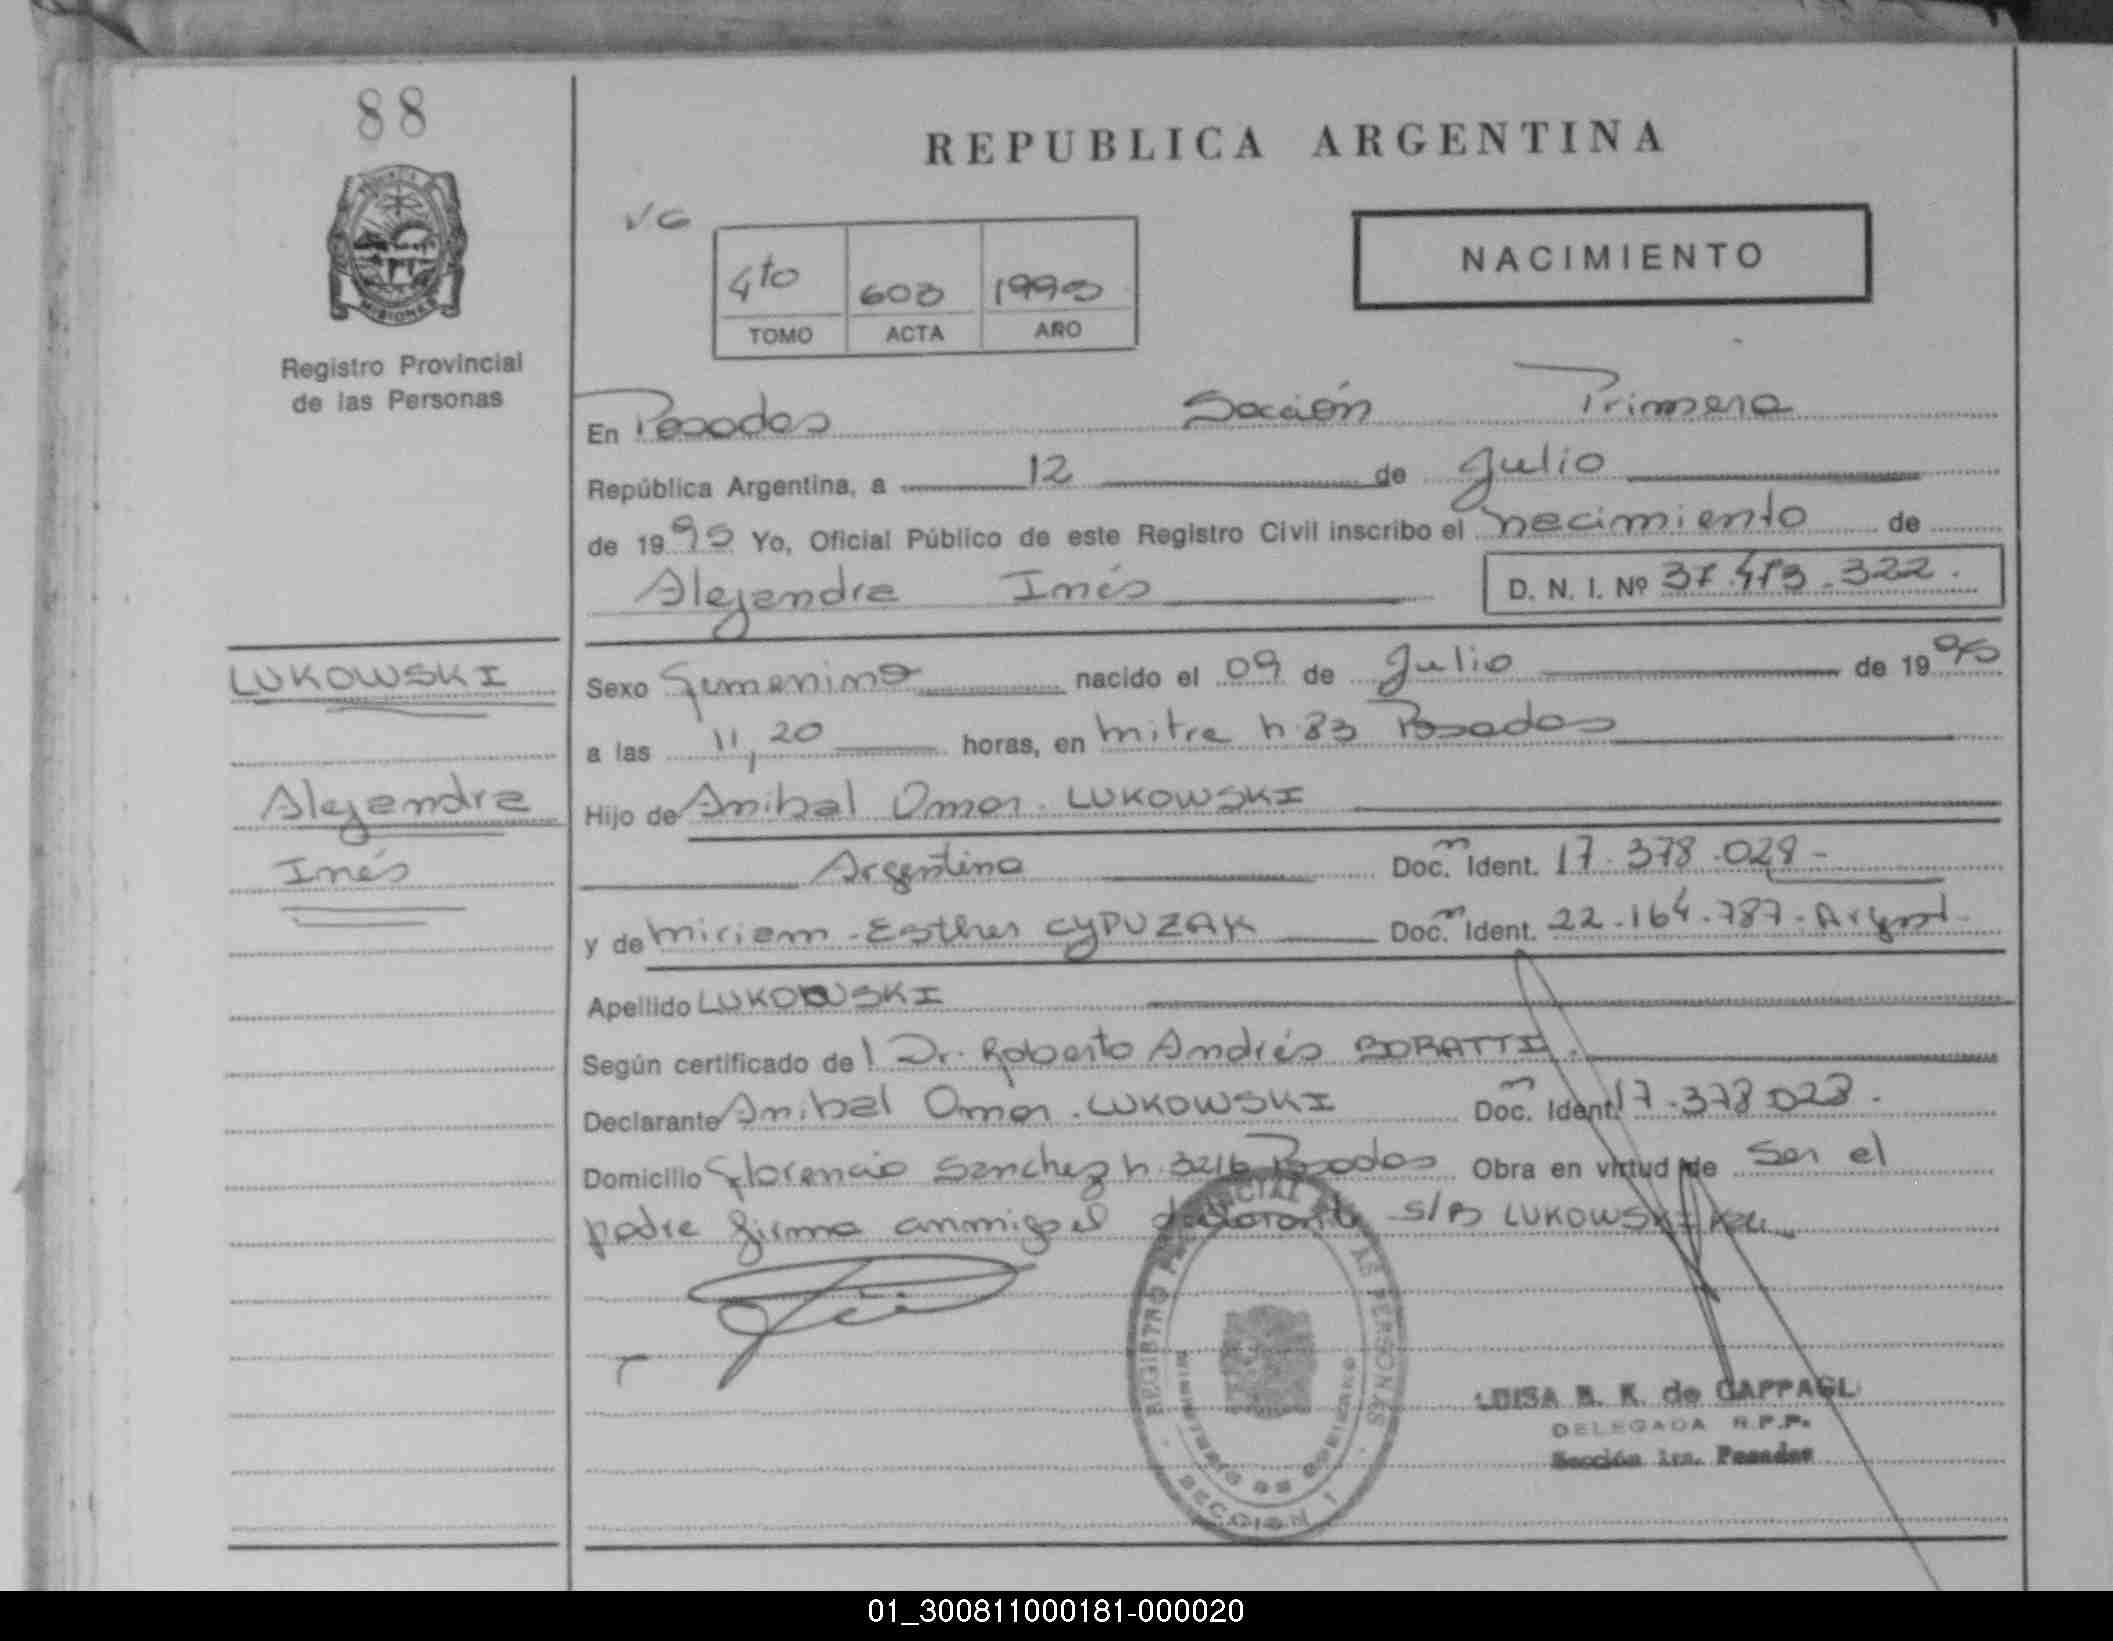 88
REPUBLICA ARGENTINA
NACIMIENTO
4to 603 1993
TOMO ACTA AÑO
MISIONES
Registro Provincial
de las Personas
En Posadas Sección Primera
República Argentina, a 12 de Julio
de 1993 Yo, Oficial Público de este Registro Civil inscribo el nacimiento de
Alejandra Inés D. N. I. Nº 37.473.322.
LUKOWSKI
Sexo Femenino nacido el 09 de Julio de 1993
a las 11,20 horas, en mitre n 83 Posadas
Alejandra
Hijo de Anibal Omar LUKOWSKI
Inés
Argentino Doc. Ident. 17.378.028-
y de miriam Esther CYPUZAK Doc. Ident. 22.164.787. Argent.
Apellido LUKOWSKI
Según certificado de Dr. Roberto Andrés BORATTI.
Declarante Anibal Omar LUKOWSKI Doc. Ident. 17.378.028.
Domicilio Florencio Sanchez n 3216 Posadas Obra en virtud de Ser el
padre firma conmigo el declarante S/B LUKOWSKI
REGISTRO PROVINCIAL DE LAS PERSONAS
MINISTERIO DE GOBIERNO
SECCION 1
LUISA B. K. de CAPPAGLI
DELEGADA R.P.P.
Sección 1ra. Posadas
01_300811000181-000020